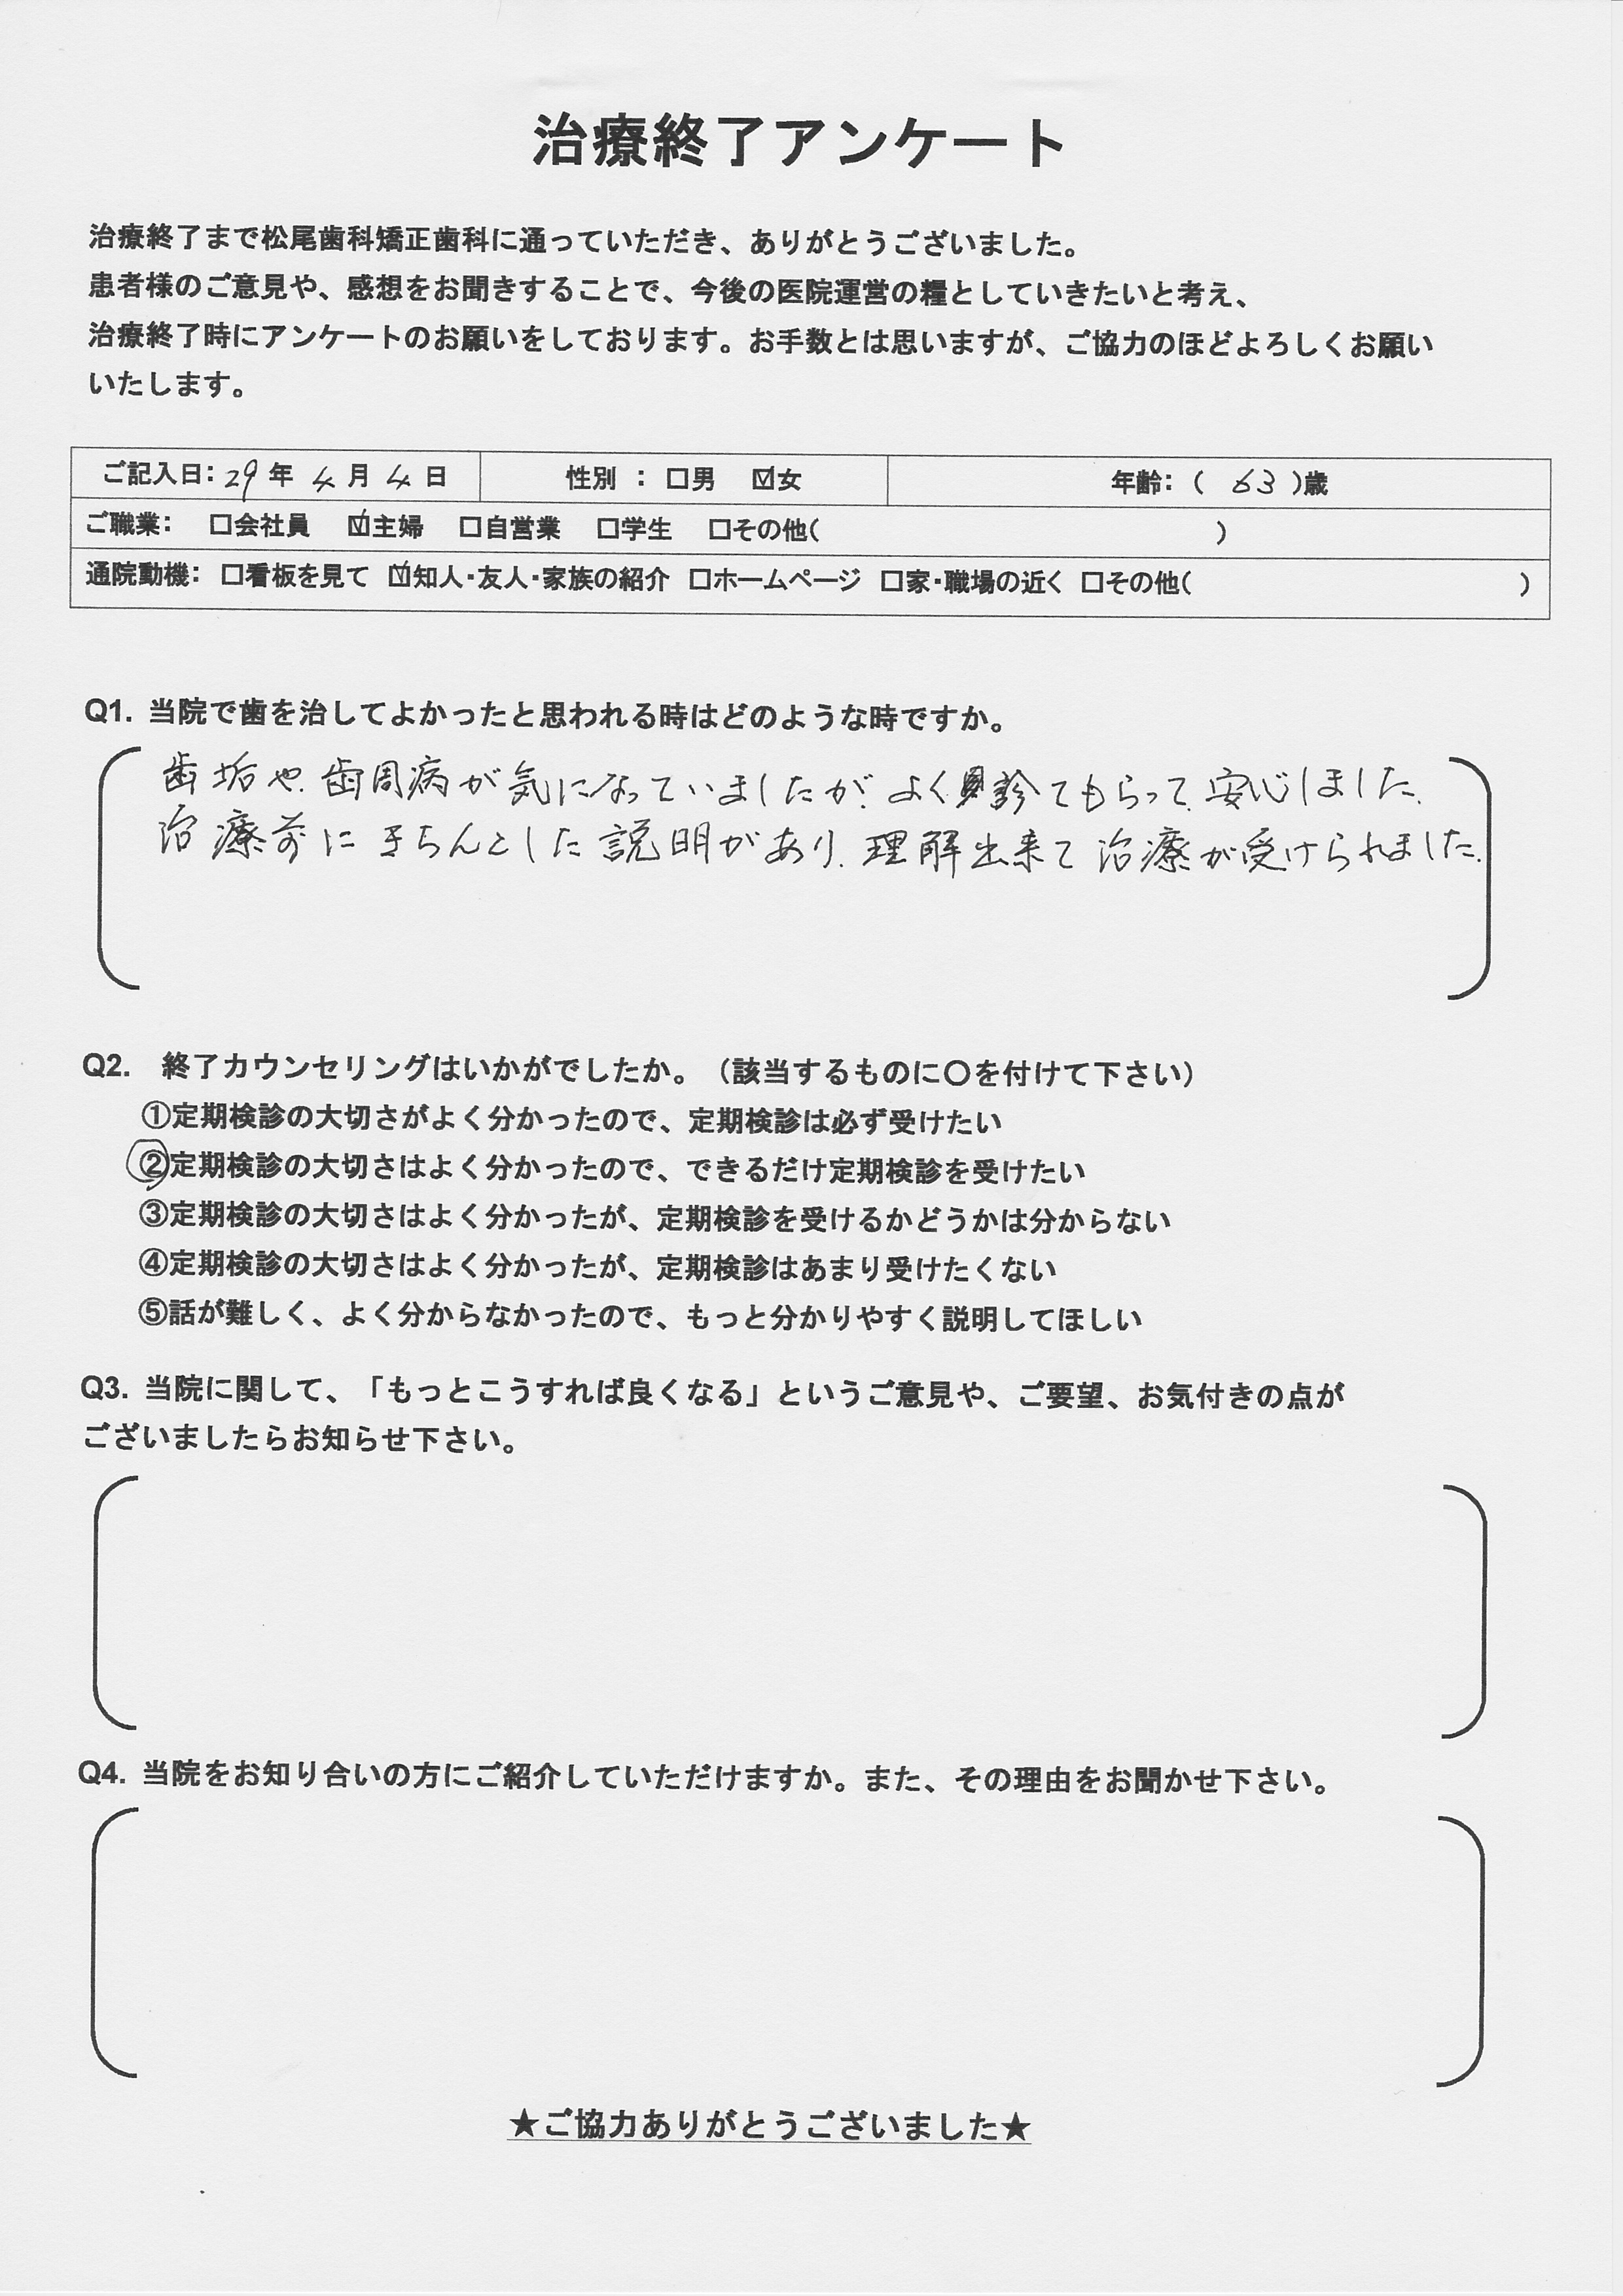 治療終了アンケート
治療終了まで松尾歯科矯正歯科に通っていただき、ありがとうございました。
患者様のご意見や、感想をお聞きすることで、今後の医院運営の糧としていきたいと考え、
治療終了時にアンケートのお願いをしております。お手数とは思いますが、ご協力のほどよろしくお願い
いたします。
ご記入日：29年 4月 4日 性別 ： □男 ☑女 年齢：（ 63 ）歳
ご職業： □会社員 ☑主婦 □自営業 □学生 □その他（ ）
通院動機： □看板を見て ☑知人・友人・家族の紹介 □ホームページ □家・職場の近く □その他（ ）
Q1. 当院で歯を治してよかったと思われる時はどのような時ですか。
歯垢や、歯周病が気になっていましたが、よく診てもらって、安心しました。
治療前に きちんとした説明があり、理解出来て治療が受けられました。
Q2. 終了カウンセリングはいかがでしたか。（該当するものに〇を付けて下さい）
①定期検診の大切さがよく分かったので、定期検診は必ず受けたい
②定期検診の大切さはよく分かったので、できるだけ定期検診を受けたい
③定期検診の大切さはよく分かったが、定期検診を受けるかどうかは分からない
④定期検診の大切さはよく分かったが、定期検診はあまり受けたくない
⑤話が難しく、よく分からなかったので、もっと分かりやすく説明してほしい
Q3. 当院に関して、「もっとこうすれば良くなる」というご意見や、ご要望、お気付きの点が
ございましたらお知らせ下さい。
Q4. 当院をお知り合いの方にご紹介していただけますか。また、その理由をお聞かせ下さい。
★ご協力ありがとうございました★